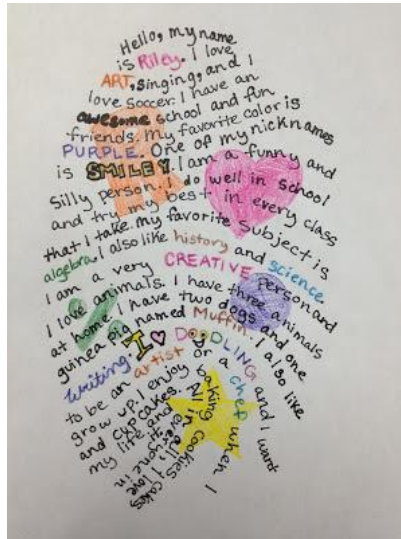 Hello, my name
is Riley. I love
ART, singing, and I
love soccer. I have an
awesome school and fun
friends. My favorite color is
PURPLE. One of my nicknames
is SMILEY. I am a funny and
Silly person. I do well in School
and try my best in every class
that I take. My favorite Subject is
algebra. I also like history and science.
I am a very CREATIVE person and
I love animals. I have three animals
at home. I have two dogs and one
guinea pig named Muffin. I also like
writing. I DOODLING
to be an artist or a chef when I
grow up. I enjoy baking Cookies, Cakes,
and cupcakes. All in all, I love
my life and everyone in
and I want